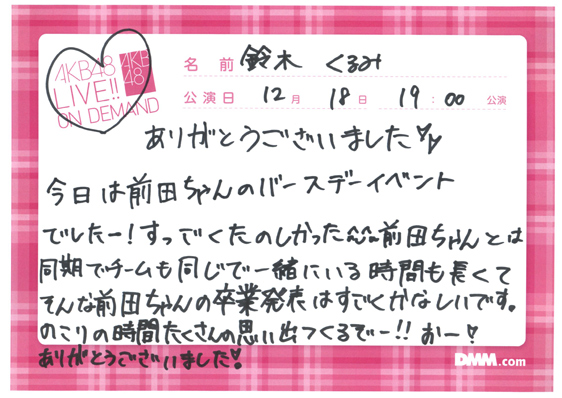 AKB48
LIVE!!
ON DEMAND
AKB
48
名前 鈴木 くるみ
公演日 12月 18日 19:00 公演
ありがとうございました♡
今日は前田ちゃんのバースデーイベント
でしたー!すっごくたのしかった^^前田ちゃんとは
同期でチームも同じで一緒にいる時間も長くて
そんな前田ちゃんの卒業発表はすごくかなしいです。
のこりの時間たくさんの思い出つくるぞー!!おー!
ありがとうございました!
DMM.com